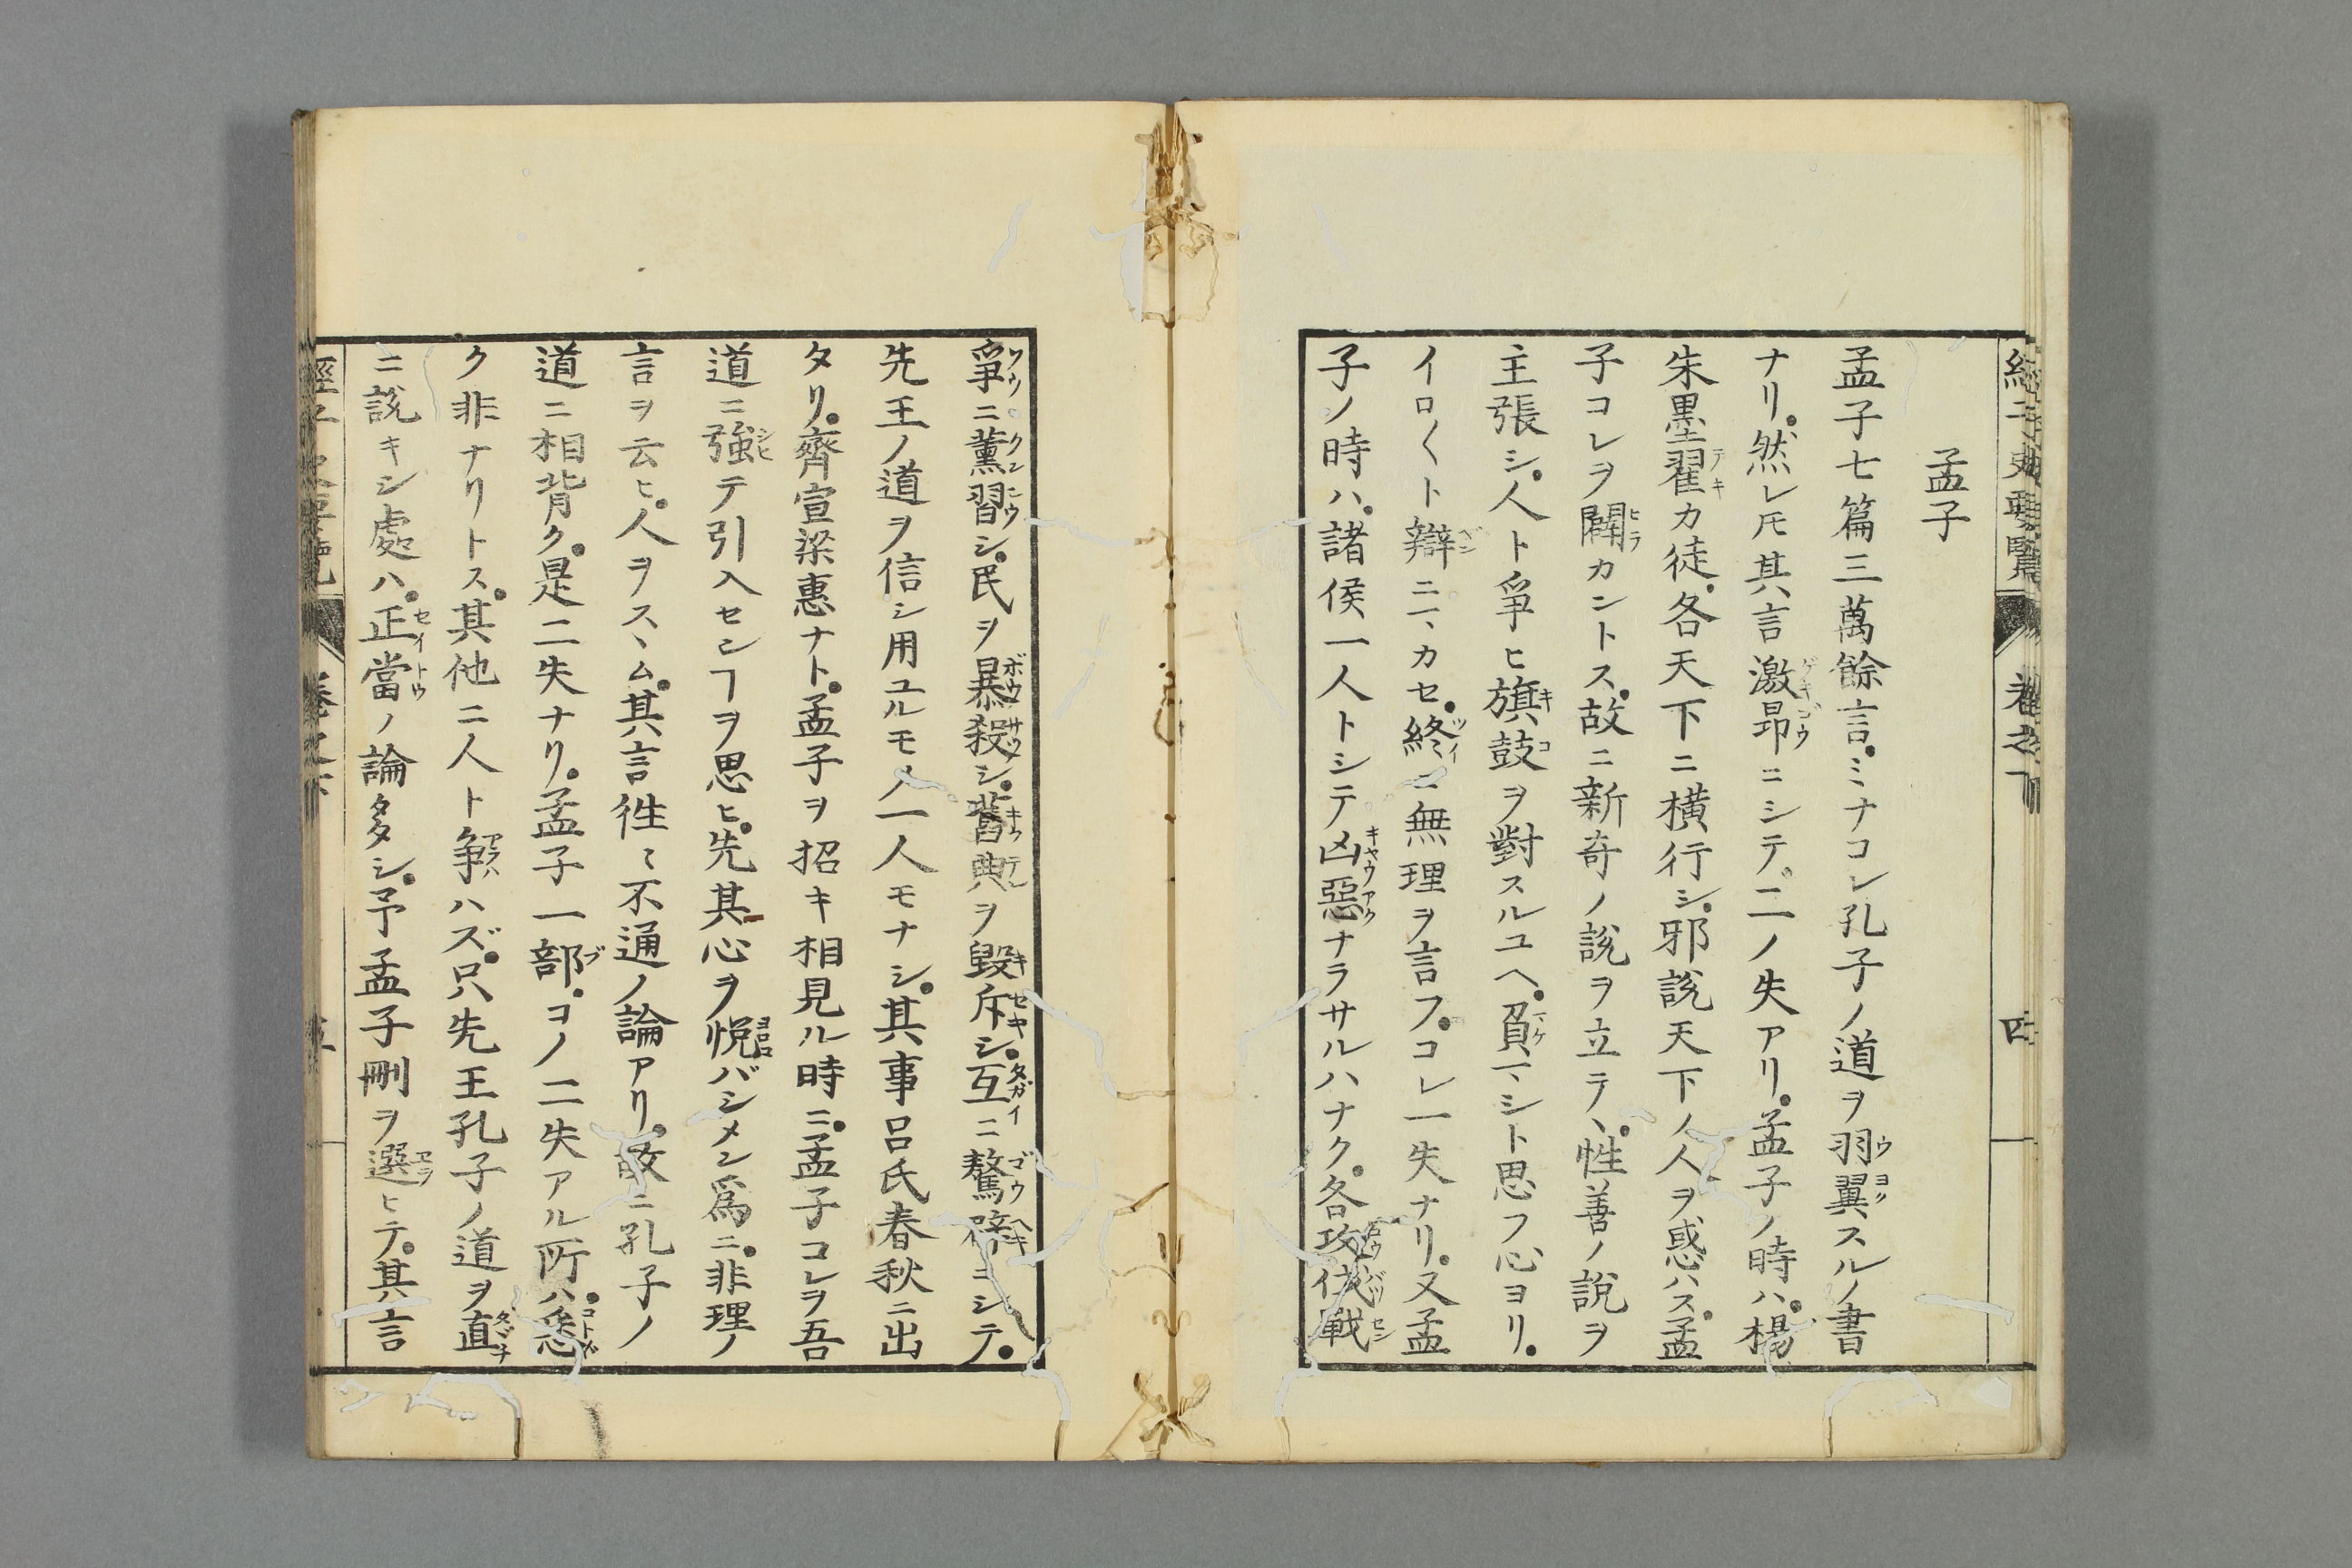 孟子
孟子七篇三萬餘言。ミナコレ孔子ノ道ヲ羽翼スルノ書
ナリ。然レ𪜈其言激昻ニシテ。二ノ失アリ。孟子ノ時ハ。楊
朱墨翟カ徒。各天下ニ橫行シ。邪說天下ノ人ヲ惑ハス。孟
子コレヲ闢カントス。故ニ新奇ノ說ヲ立テヽ。性善ノ說ヲ
主張シ。人ト爭ヒ旗鼓ヲ對スルユヘ。負マシト思フ心ヨリ。
イロ〱ト辯ニマカセ。終ニ無理ヲ言フ。コレ一失ナリ。又孟
子ノ時ハ。諸侯一人トシテ凶惡ナラサルハナク。各攻伐戰
爭ニ薰習シ。民ヲ暴殺シ。舊典ヲ毀斥シ。互ニ驁辟ニシテ。
先王ノ道ヲ信シ用ユルモノ一人モナシ。其事呂氏春秋ニ出
タリ。齊宣梁惠ナト。孟子ヲ招キ相見ル時ニ。孟子コレヲ吾
道ニ強テ引入セシヿヲ思ヒ。先其心ヲ悅バシメン爲ニ。非理ノ
言ヲ云ヒ。人ヲスヽム。其言徃〻不通ノ論アリ。故ニ孔子ノ
道ニ相背ク。是二失ナリ。孟子一部。コノ二失アル所ハ。悉
ク非ナリトス。其他ニ人ト爭ハズ。只先王孔子ノ道ヲ直
ニ說キシ處ハ。正當ノ論多シ。予孟子刪ヲ選ヒテ。其言